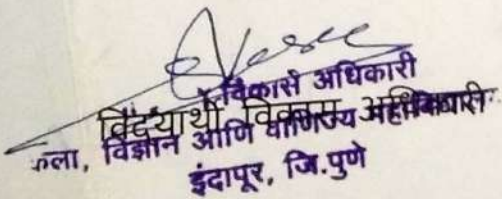 विकास अधिकारी
विद्यार्थी विकास अधिकारी
कला, विज्ञान आणि वाणिज्य महाविद्यालय
इंदापूर, जि.पुणे